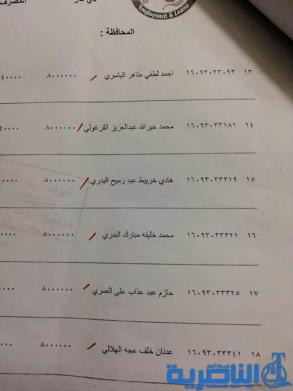 ذي قار المصرف
Employment & Loans
المحافظة :
١٣ ١٦٠٩٣٠٣٣٠٩٣ احمد لطفي طاهر الياسري ٨٠٠٠٠٠٠
١٤ ١٦٠٩٣٠٣٣١٨١ محمد خيرالله عبدالعزيز القرغولي ٨٠٠٠٠٠٠
١٥ ١٦٠٩٣٠٣٣٣١٩ هادي خريبط عبد رميح البدري ٨٠٠٠٠٠٠
١٦ ١٦٠٩٣٠٣٣٣٢١ محمد خليفه مبارك البدري ٨٠٠٠٠٠٠
١٧ ١٦٠٩٣٠٣٣٣٢٥ حازم عبد عذاب علي العمري ٨٠٠٠٠٠٠
١٨ ١٦٠٩٣٠٣٣٣٤١ عدنان خلف عجه الهلالي ٨٠٠٠٠٠٠
الناصرية